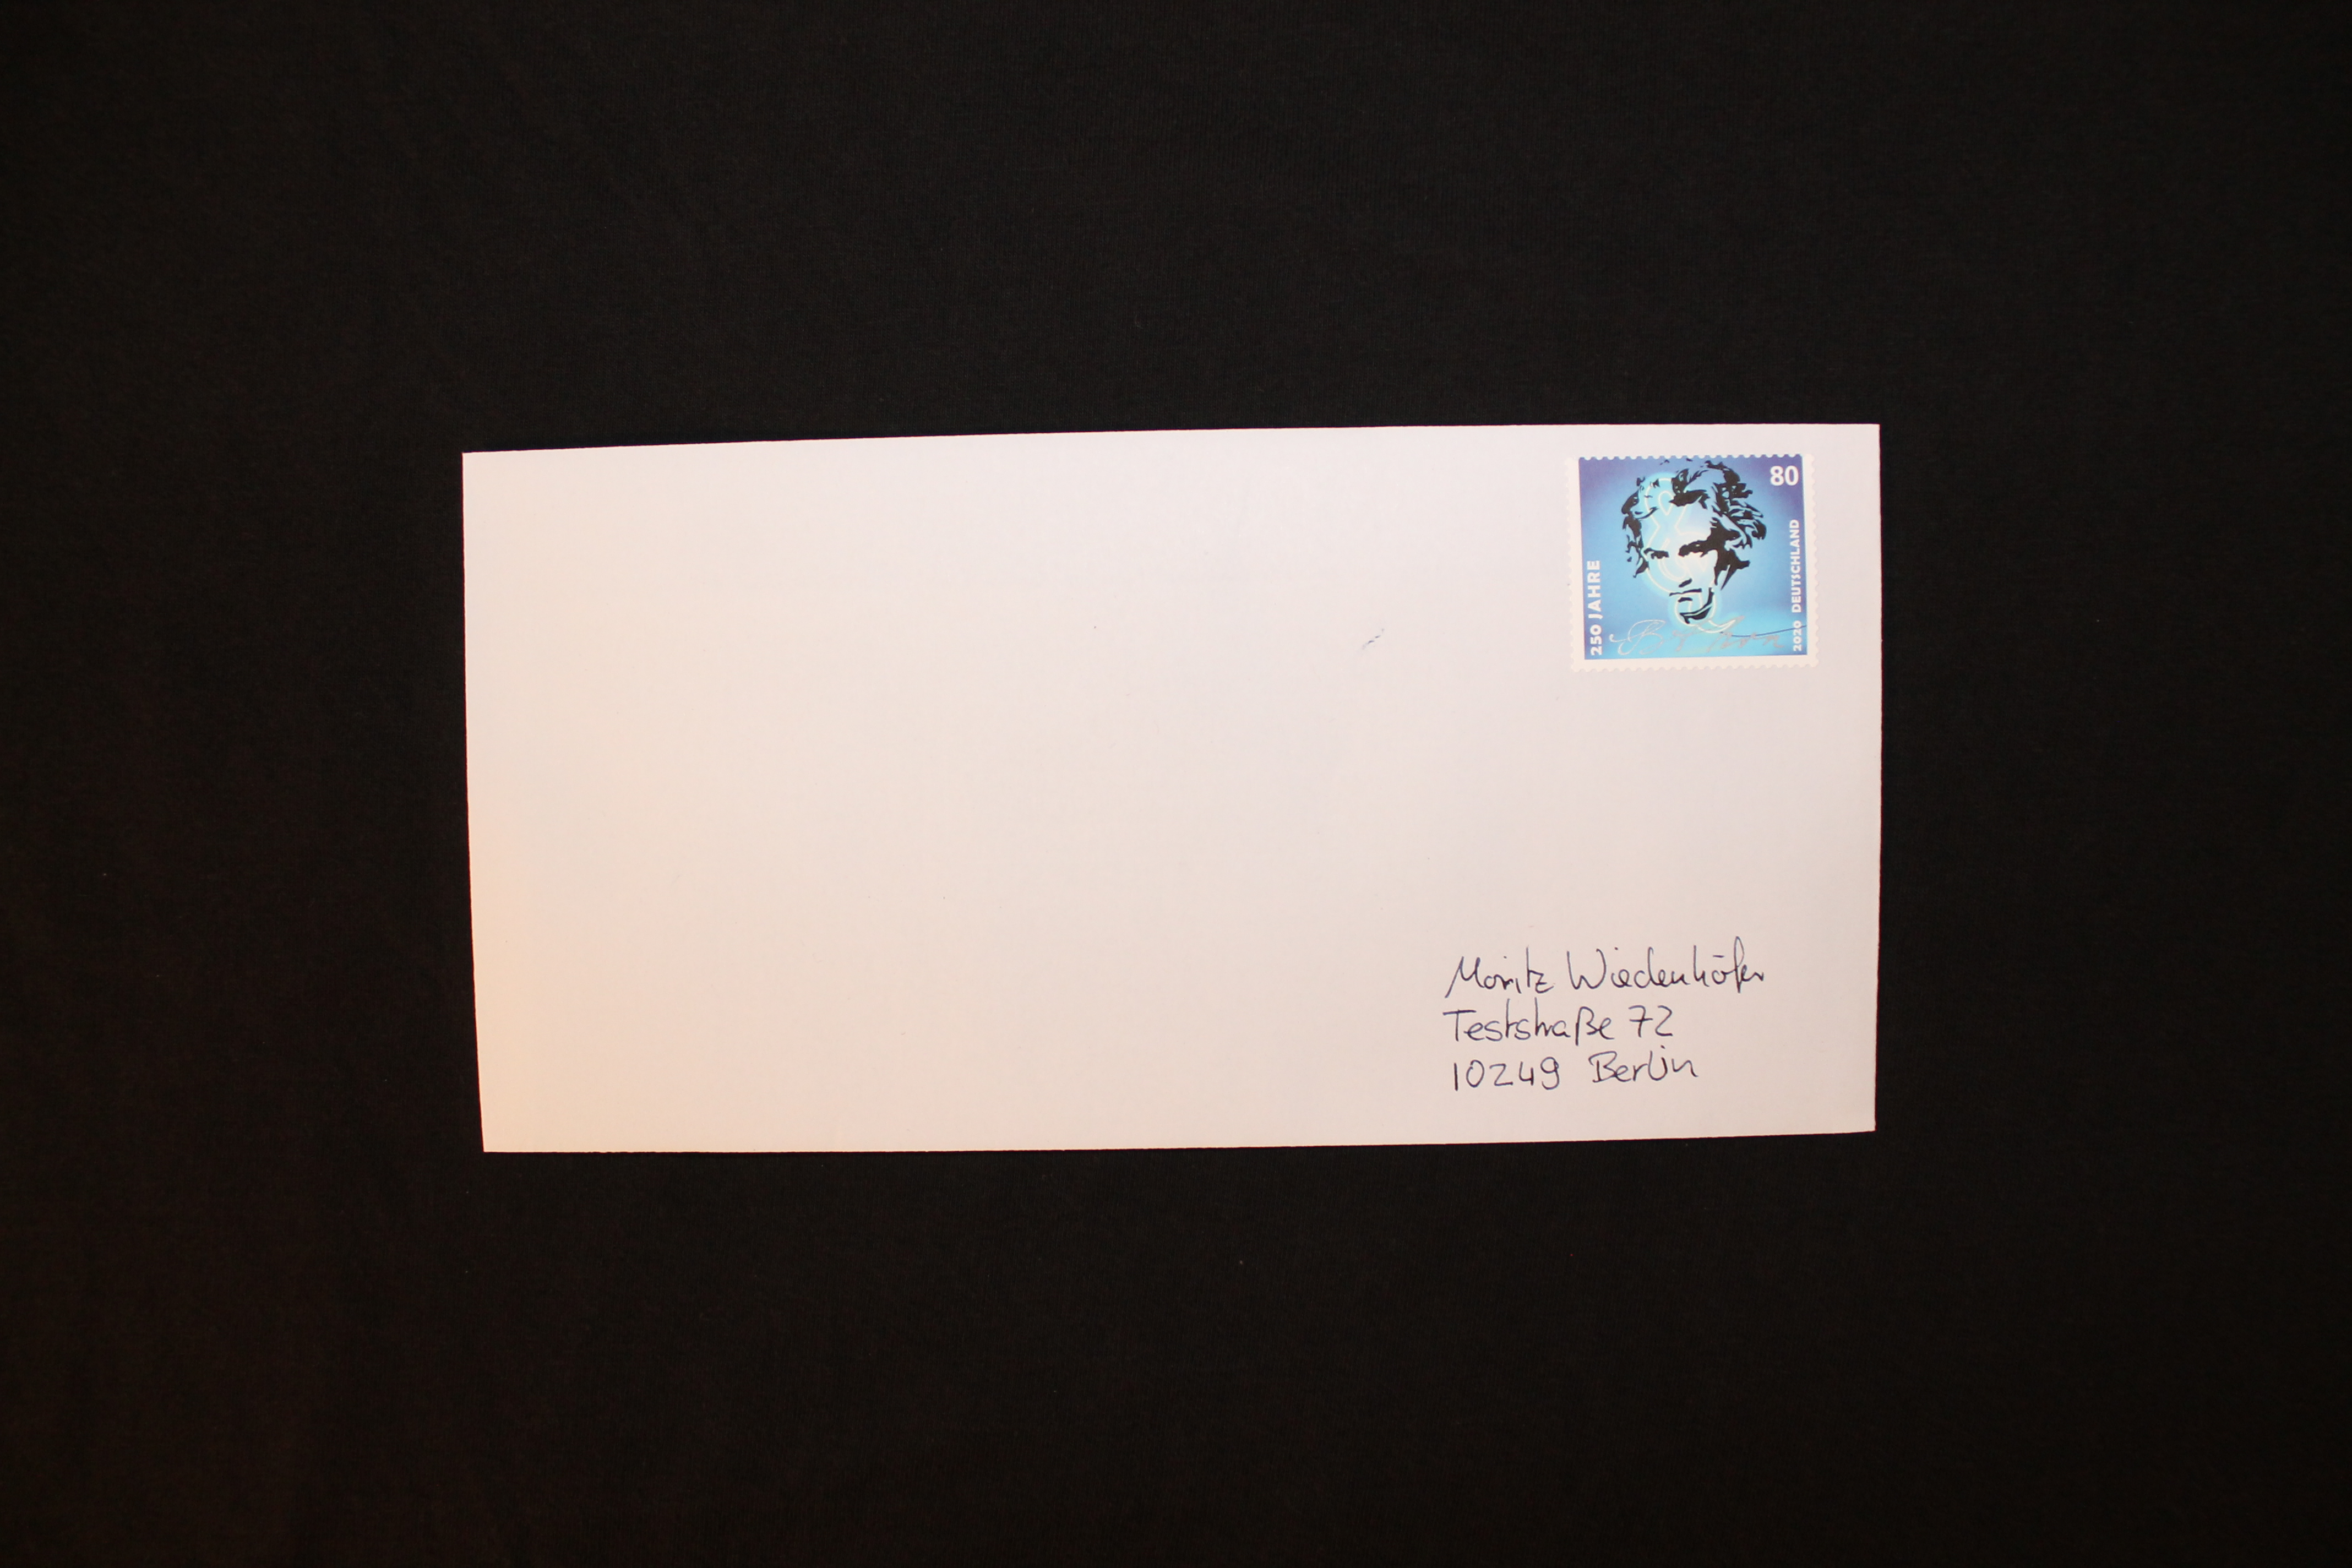 80
250 JAHRE
2020 DEUTSCHLAND
Moritz Wiedenhöfer
Teststraße 72
10249 Berlin